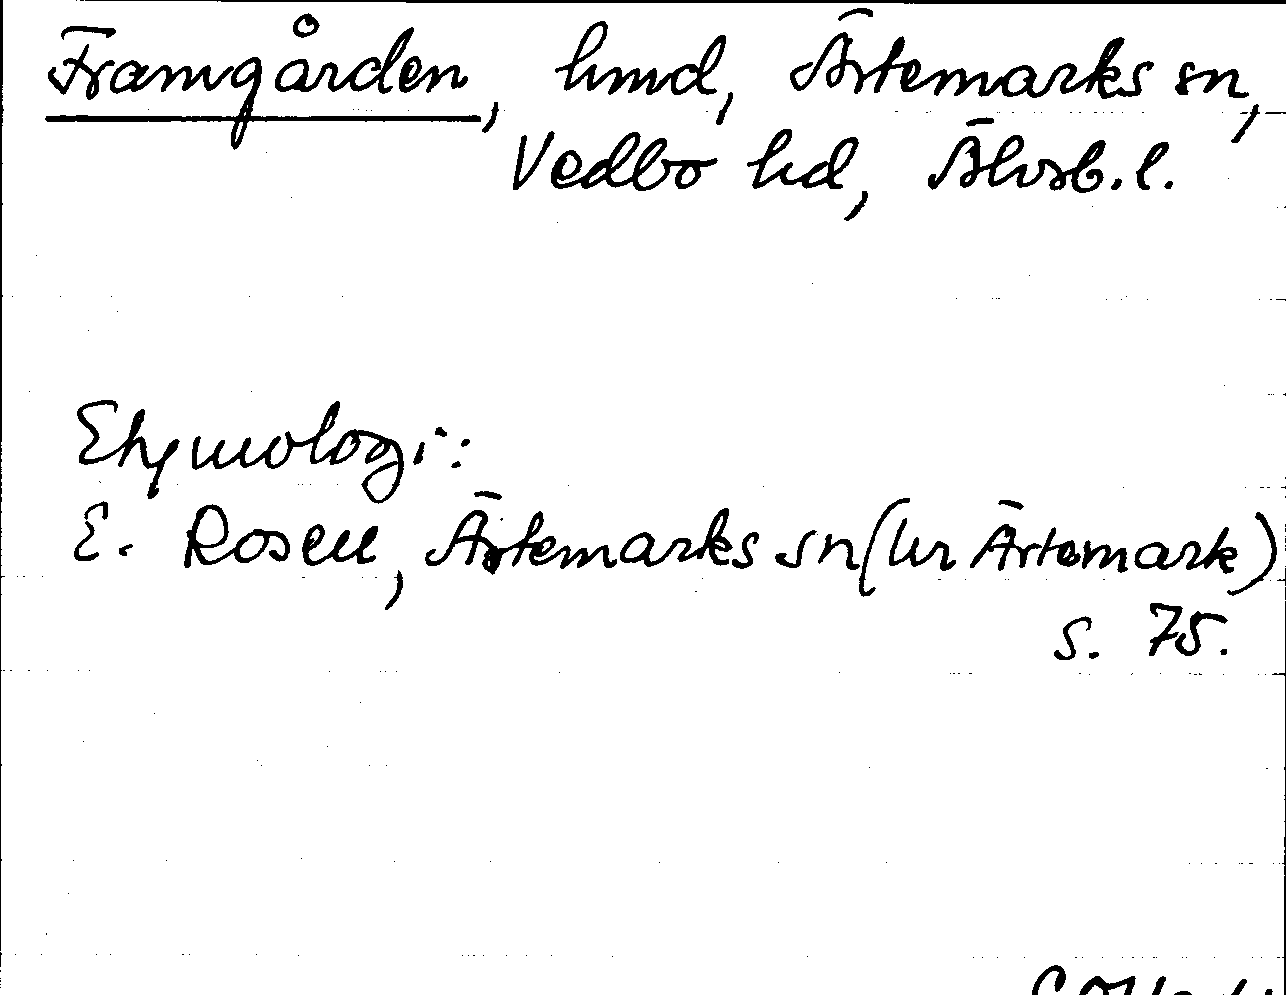 Framgården, hmd, Ärtemarks sn,
Vedbo hd, Älvsb. l.
Etymologi:
E. Rosell, Ärtemarks sn (ur Ärtemark)
s. 75.